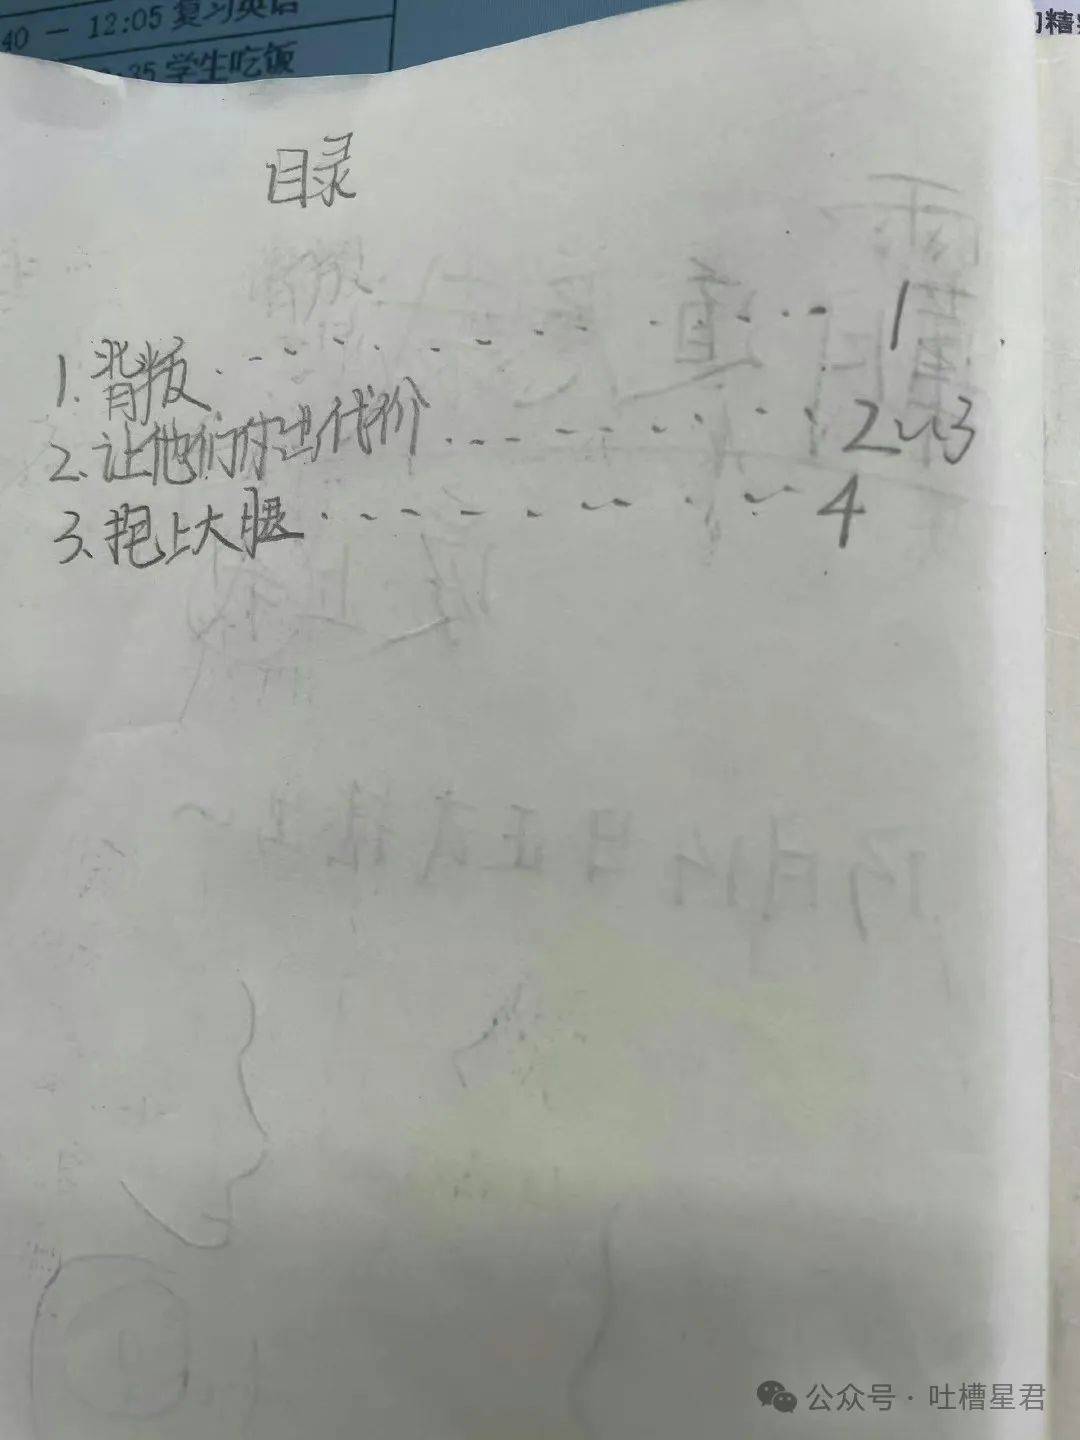 40 － 12:05 复习英语
:35 学生吃饭
目录
1.背叛·········1
2.让他们付出代价·········2~3
3.抱上大腿·········4
公众号 · 吐槽星君